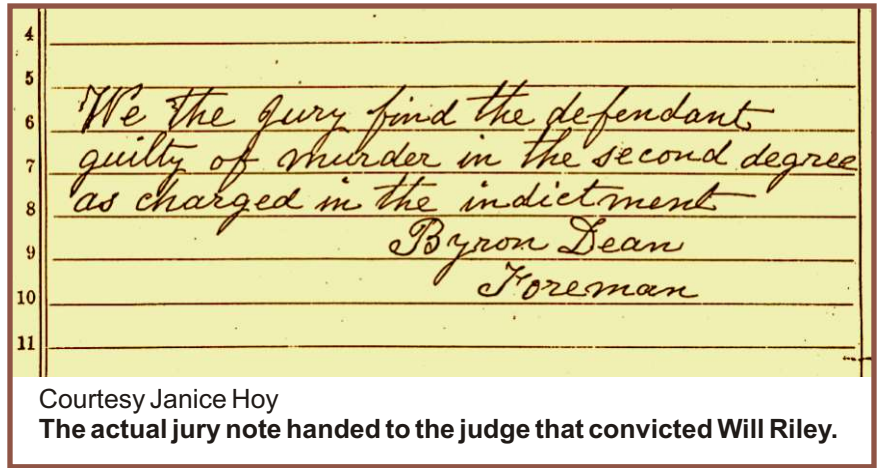 4
5
We the Jury find the defendant
6
guilty of murder in the second degree
7
as charged in the indictment
8
Byron Dean
9
Foreman
10
11
Courtesy Janice Hoy
The actual jury note handed to the judge that convicted Will Riley.